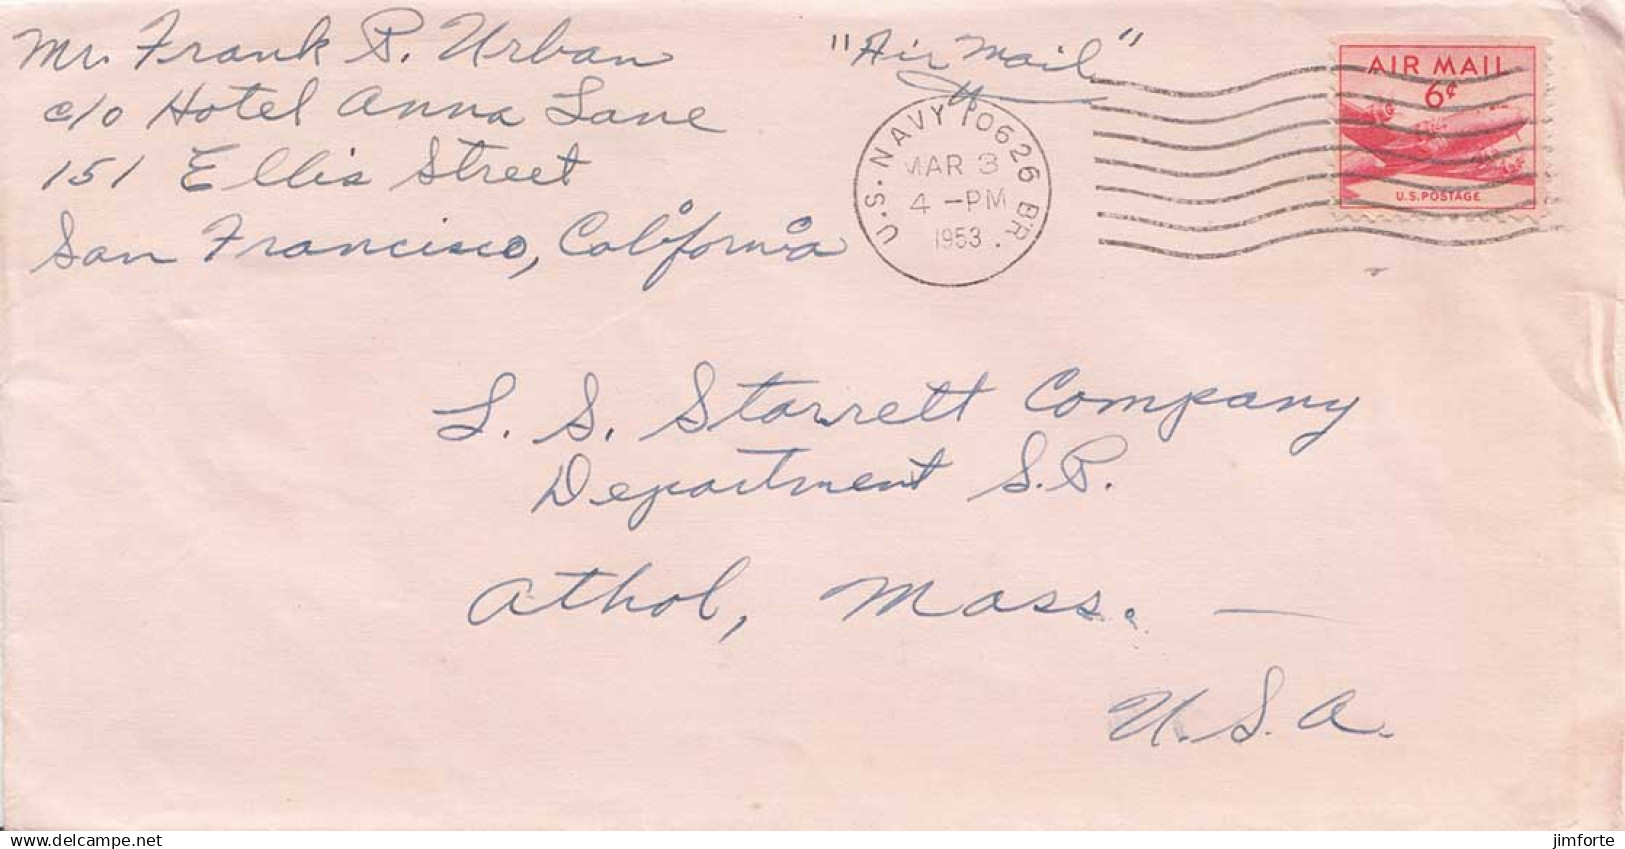 Mr. Frank P. Urban
c/o Hotel Anna Lane
151 Ellis Street
San Francisco, California
"Air Mail"
U.S. NAVY 10626 BR.
MAR 3
4 -PM
1953
AIR MAIL
6¢
U.S. POSTAGE
L. S. Starrett Company
Department S.P.
Athol, Mass. —
U.S.A.
www.delcampe.net
jimforte